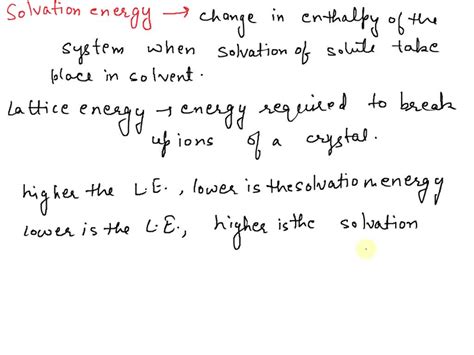 Solvation energy → change in enthalpy of the
system when solvation of solute take
place in solvent.
Lattice energy → energy required to break
up ions of a crystal.
higher the L.E., lower is the solvation energy
lower is the L.E., higher is the solvation